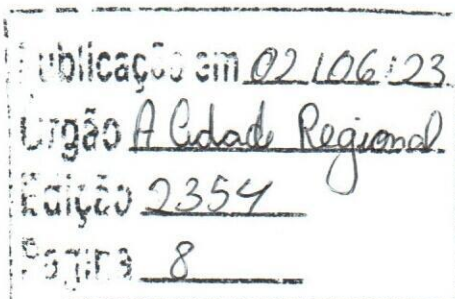 Publicação em 02/06/23
Órgão A Cidade Regional
Edição 2354
Página 8